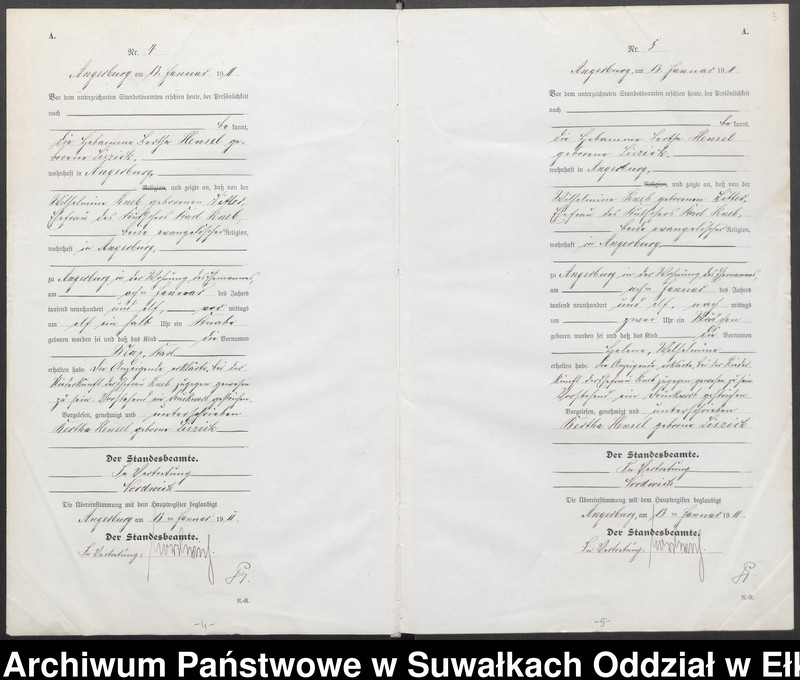 A.
Nr. 4
Angerburg am 13. Januar 1911.
Vor dem unterzeichneten Standesbeamten erschien heute, der Persönlichkeit
nach
bekannt,
die Hebamme Bertha Hensel ge-
borene Liszick,
wohnhaft in Angerburg,
Religion, und zeigte an, daß von der
Wilhelmine Kneb geborenen Litter,
Ehefrau des Kutschers Karl Kneb,
beide evangelischer Religion,
wohnhaft in Angerburg
zu Angerburg in der Wohnung des Ehemannes,
am Januar des Jahres
tausend neunhundert und elf, vor mittags
um elf ein halb Uhr ein Knabe
geboren worden sei und daß das Kind die Vornamen
Karl
erhalten habe. Die Anzeigende erklärte, bei der
Niederkunft der Ehefrau Kneb zugegen gewesen
zu sein. Vorstehend ein Druckwort gestrichen.
Vorgelesen, genehmigt und unterschrieben
Bertha Hensel geborne Liszick
Der Standesbeamte.
In Vertretung
Nordwich
Die Übereinstimmung mit dem Hauptregister beglaubigt
Angerburg am 13ten Januar 1911
Der Standesbeamte.
In Vertretung:
R.-R.
-4-
3
A.
Nr. 5
Angerburg, am 13. Januar 1911.
Vor dem unterzeichneten Standesbeamten erschien heute, der Persönlichkeit
nach
bekannt,
die Hebamme Bertha Hensel
geborene Liszick,
wohnhaft in Angerburg,
Religion, und zeigte an, daß von der
Wilhelmine Kneb geborenen Litter,
Ehefrau des Kutschers Karl Kneb,
beide evangelischer Religion,
wohnhaft in Angerburg
zu Angerburg in der Wohnung des Ehemannes
am Januar des Jahres
tausend neunhundert und elf, nach mittags
um zwei Uhr ein Mädchen
geboren worden sei und daß das Kind die Vornamen
Helene, Wilhelmine
erhalten habe. Die Anzeigende erklärte, bei der Nieder-
kunft der Ehefrau Kneb zugegen gewesen zu sein.
Vorstehend ein Druckwort gestrichen.
Vorgelesen, genehmigt und unterschrieben
Bertha Hensel geborne Liszick
Der Standesbeamte.
In Vertretung
Nordwich
Die Übereinstimmung mit dem Hauptregister beglaubigt
Angerburg, am 13ten Januar 1911.
Der Standesbeamte.
In Vertretung.
R.-R.
-5-
Archiwum Państwowe w Suwałkach Oddział w Ełk